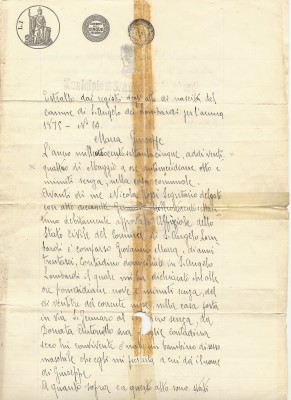 Estratto dai registri degli atti di nascita del
comune di S. Angelo dei Lombardi per l'anno
1875 - N° 70
Maria Giuseppe
L'anno milleottocento settantacinque, addì venti
quattro di Maggio a ore antimeridiane otto e
minuti senza, nella casa comunale.
Avanti di me Nicola Segretario
con atto
debitamente approvato Uffiziale dello
Stato Civile del Comune di S. Angelo Lom
bardi è comparso Giovanni Maria, di anni
trentatre, Contadino domiciliato in S. Angelo
Lombardi il quale mi ha dichiarato che alle
ore pomeridiane nove e minuti senza, del
dì ventitre del corrente mese, nella casa posta
in via S. Gennaro al numero senza, da
Donata Antonello sua moglie contadina
seco lui convivente è nato un bambino di sesso
maschile che egli mi presenta e a cui dà il nome
di Giuseppe.
A quanto sopra e a questo atto sono stati